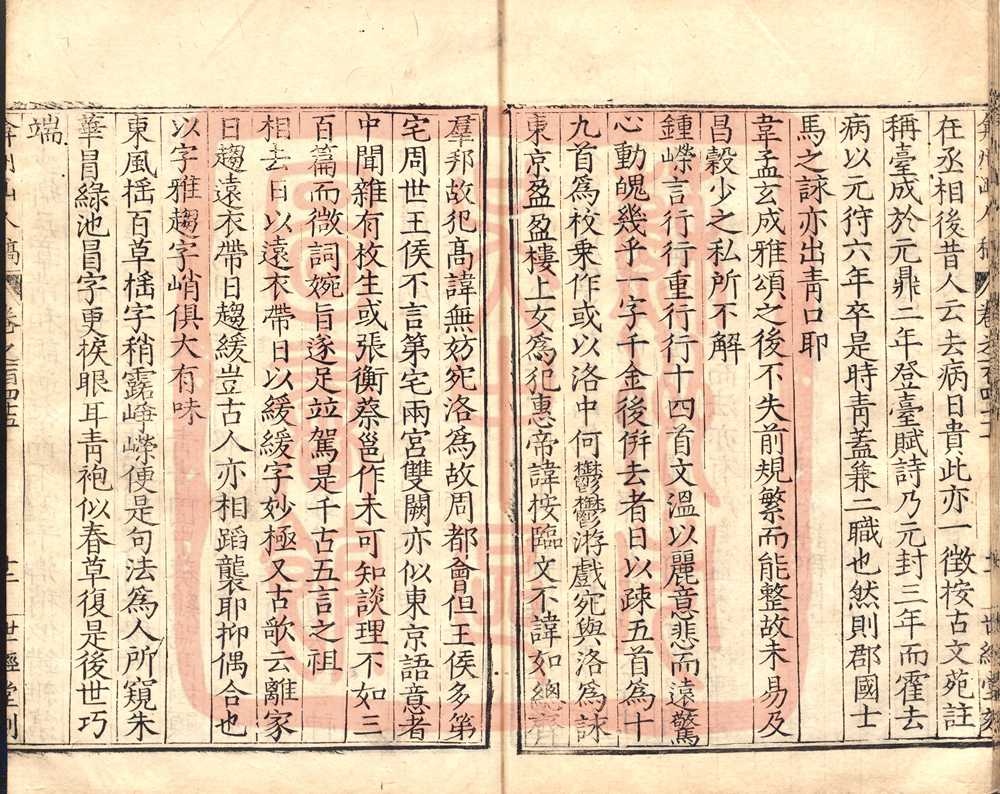 在丞相後昔人云去病日貴此亦一徵按古文苑註
稱臺成於元鼎二年登臺賦詩乃元封三年而霍去
病以元狩六年卒是時青蓋兼二職也然則郡國士
馬之詠亦出青口耶
韋孟玄成雅頌之後不失前規繁而能整故未易及
昌穀少之私所不解
鍾嶸言行行重行行十四首文溫以麗意悲而遠驚
心動魄幾乎一字千金後併去者日以疎五首為十
九首為枚乗作或以洛中何鬱鬱游戲宛與洛為詠
東京盈盈樓上女為犯惠帝諱按臨文不諱如總齊
羣邦故犯髙諱無妨宛洛為故周都會但王侯多第
宅周世王侯不言第宅兩宮雙闕亦似東京語意者
中聞雜有枚生或張衡蔡邕作未可知談理不如三
百篇而微詞婉旨遂足竝駕是千古五言之祖
相去日以遠衣帶日以緩緩字妙極又古歌云離家
日趨遠衣帶日趨緩豈古人亦相蹈襲耶抑偶合也
以字雅趨字峭俱大有味
東風揺百草揺字稍露崢嶸便是句法為人所窺朱
華冒綠池冒字更捩眼耳青袍似春草復是後世巧
端
弇州山人稿 卷之一百四十五 十二 世經堂刻